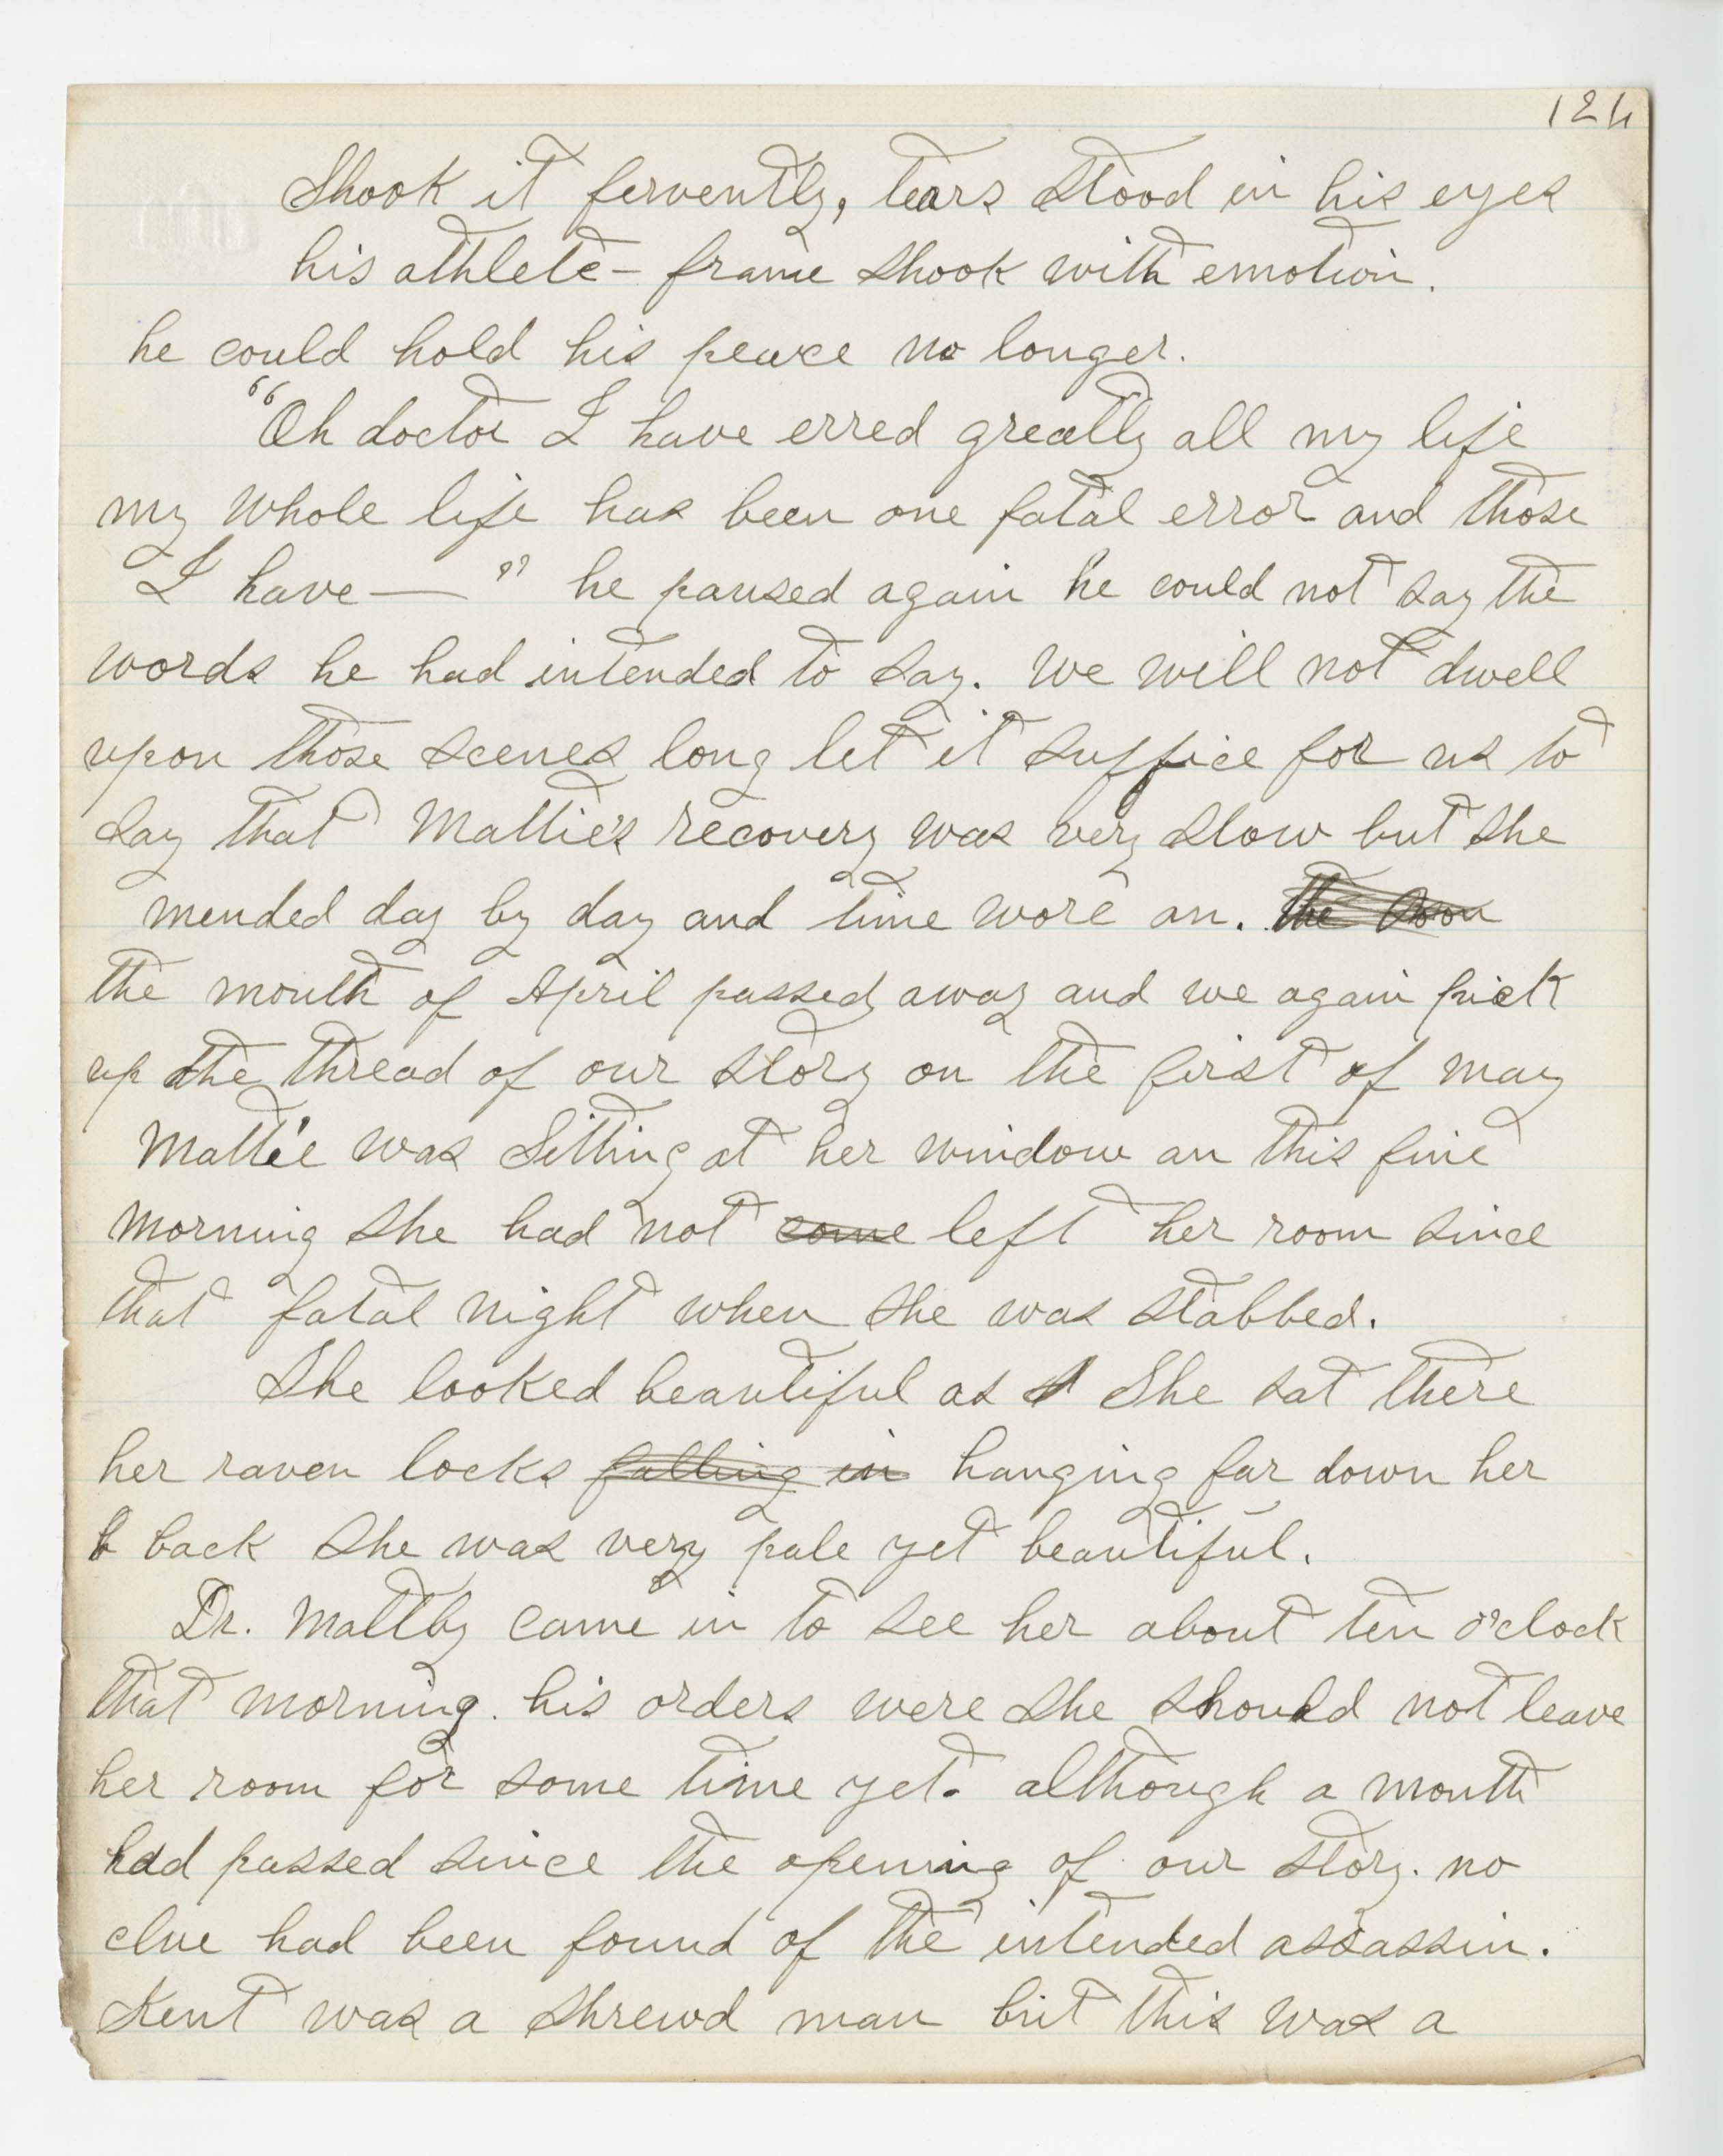 124
Shook it fervently, tears stood in his eyes
his athlete- frame shook with emotion.
he could hold his peace no longer.
"Oh doctor I have erred greatly all my life
my whole life has been one fatal error and those
I have — " he paused again he could not say the
words he had intended to say. We will not dwell
upon those scenes long let it suffice for us to
say that Mattie's recovery was very slow but she
mended day by day and time wore an. the
the month of April passed away and we again pick
up the thread of our story on the first of may
Mattie was Sitting at her window an this fine
morning she had not come left her room since
that fatal night when she was stabbed.
She looked beautiful as She sat there
her raven locks falling in hanging far down her
b back she was very pale yet beautiful.
Dr. Maltby came in to see her about ten o'clock
that morning. his orders were she should not leave
her room for some time yet. although a month
had passed since the opening of our story. no
clue had been found of the intended assassin.
Kent was a shrewd man but this was a